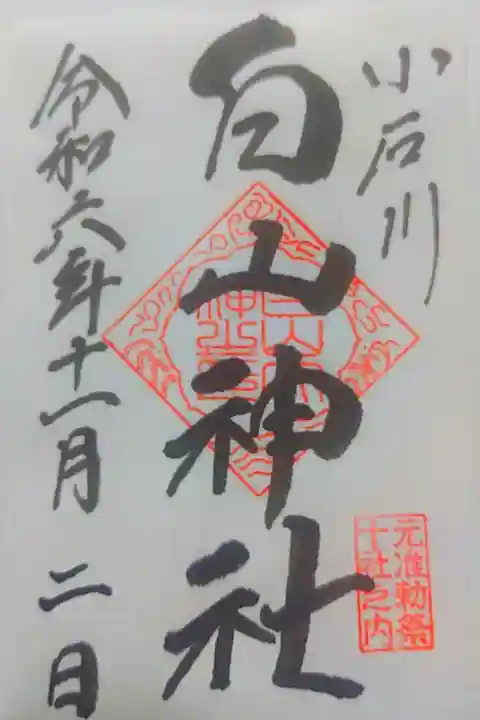 小石川
白山神社
元准勅祭
十社之内
令和六年十一月 二日